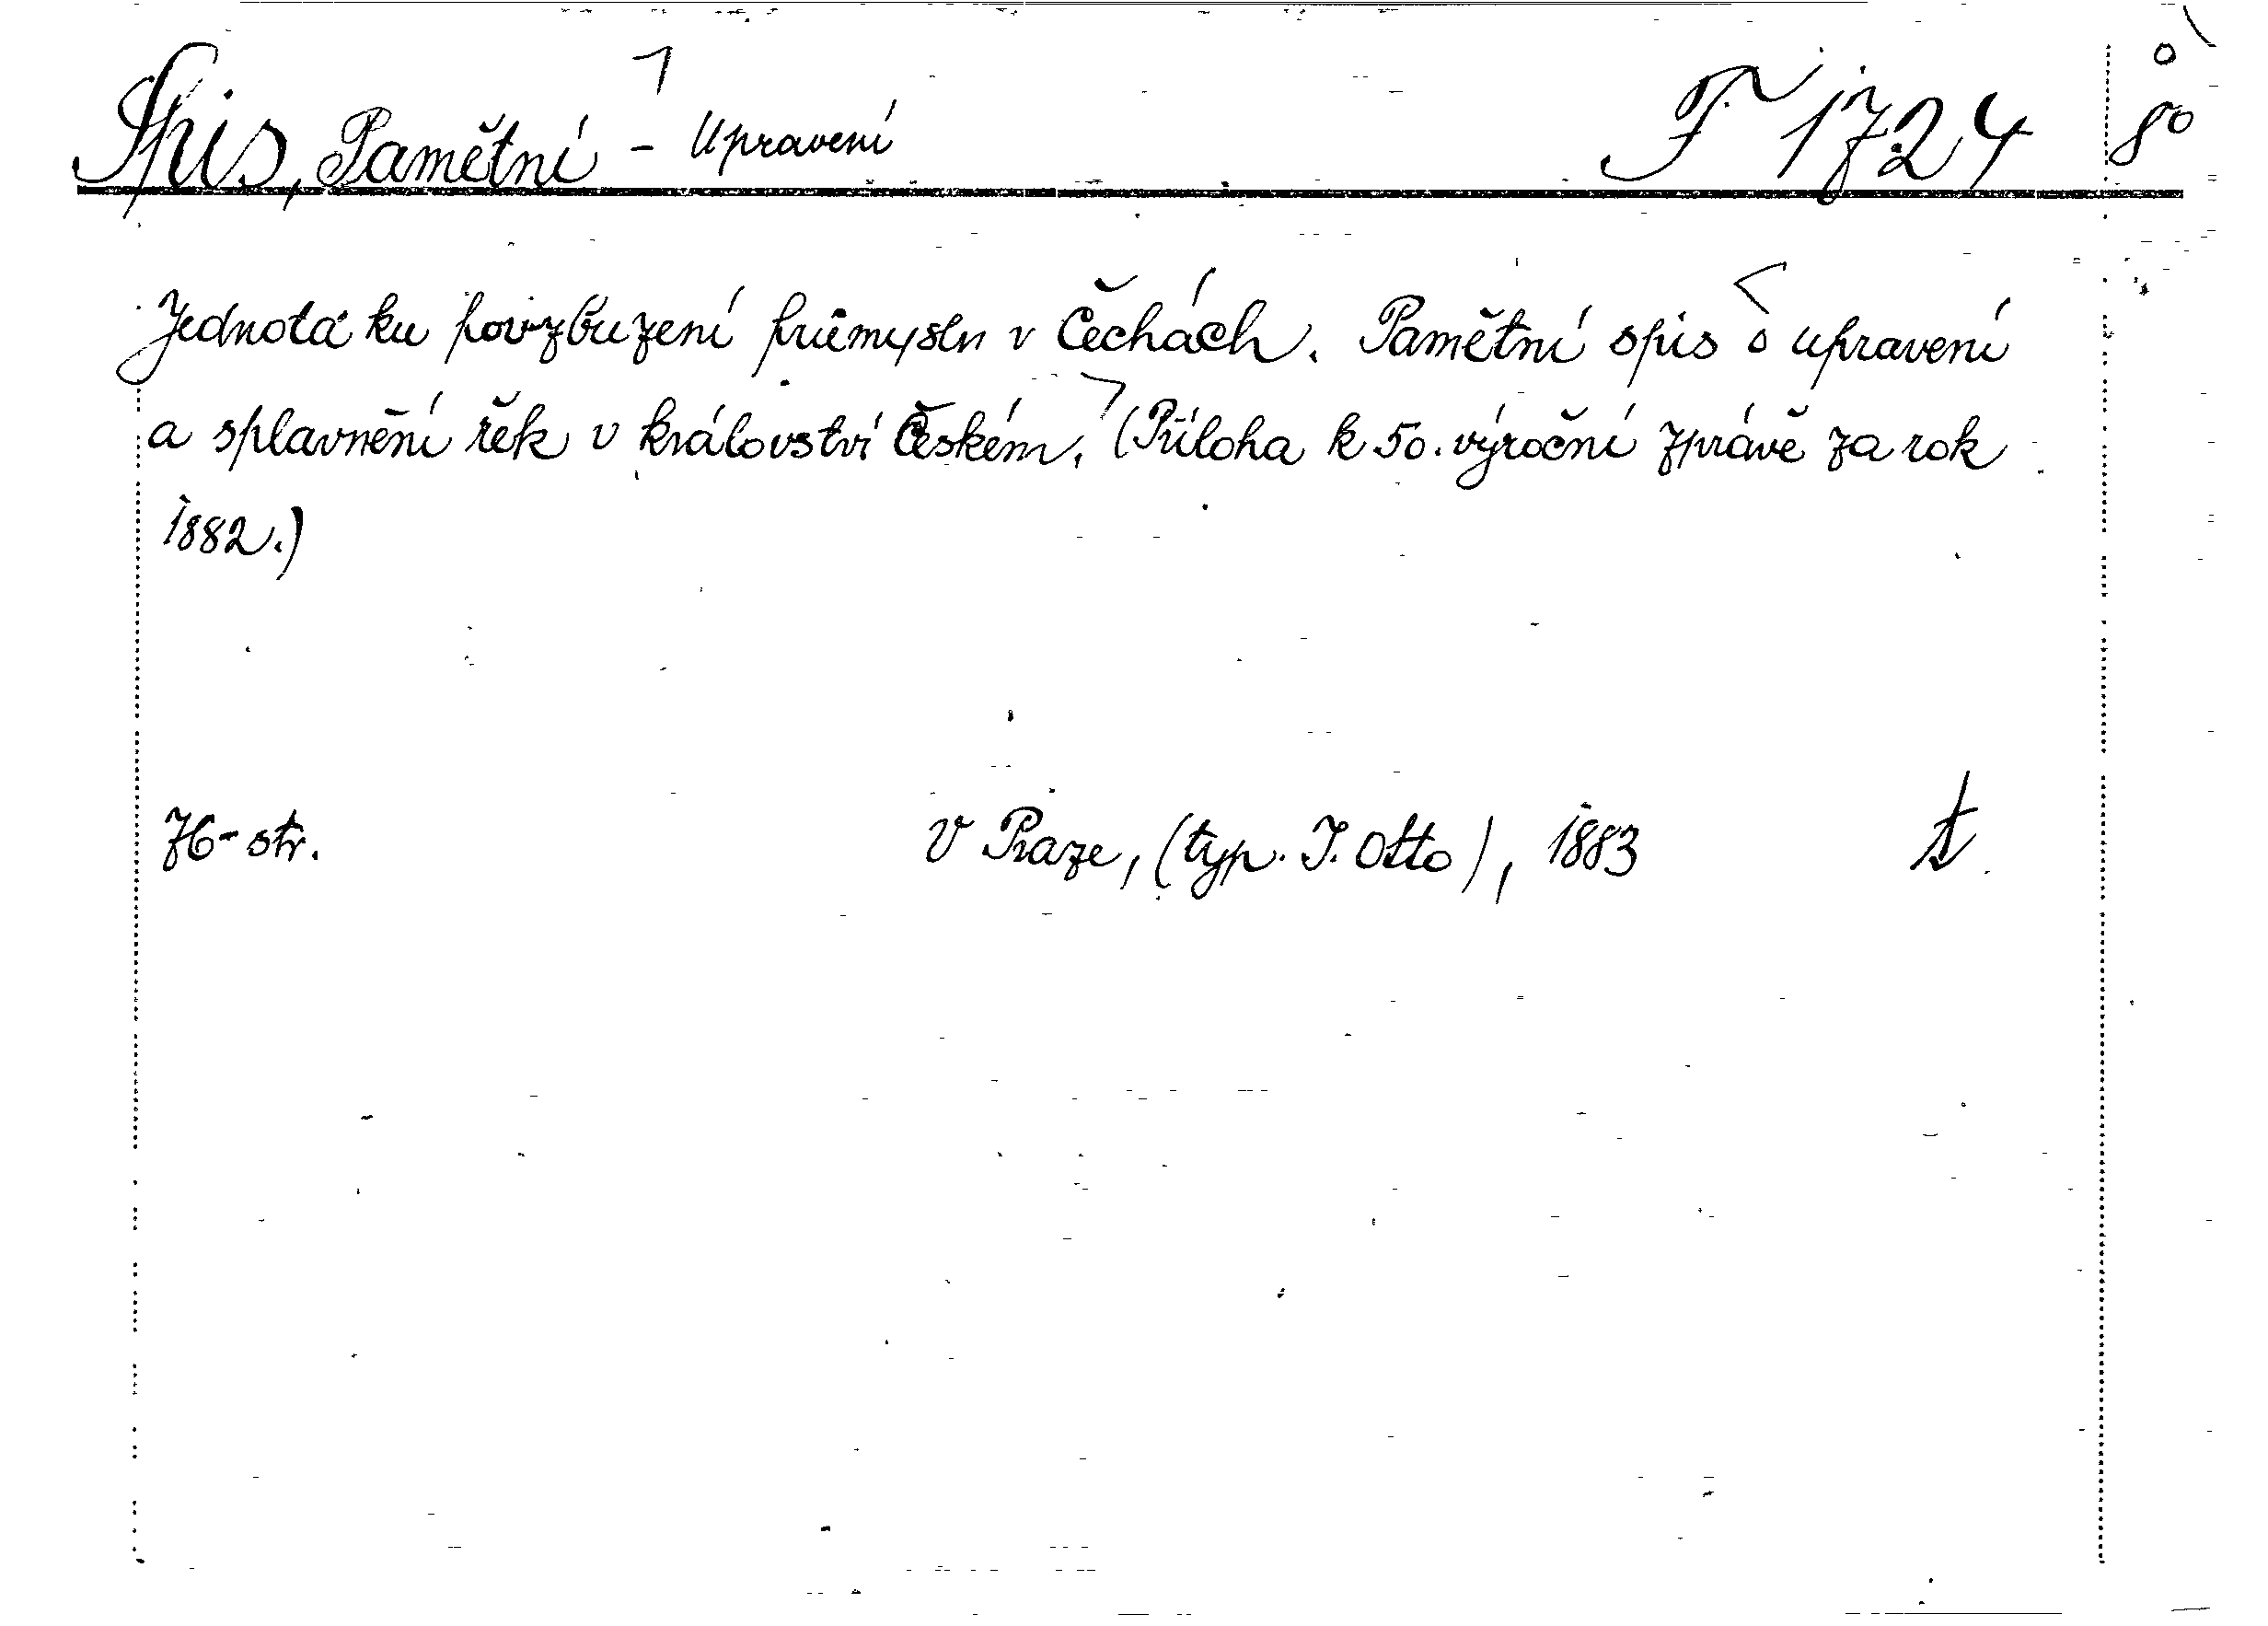 Spis, Pamětní - Upravení F 1724 8°
Jednota ku povzbuzení průmyslu v Čechách. Pamětní spis o upravení
a splavnění řek v království Českém. (Příloha k 50. výroční zprávě za rok
1882.)
76 str. V Praze, (typ. J. Otto), 1883